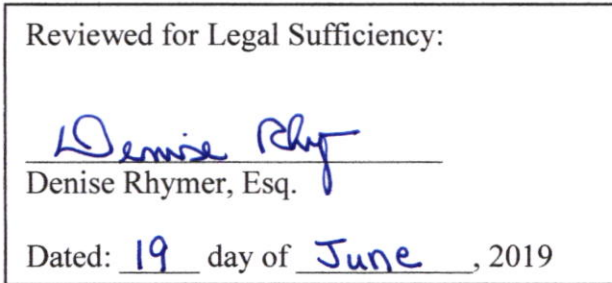 Reviewed for Legal Sufficiency:
Denise Rhy
Denise Rhymer, Esq.
Dated: 19 day of June, 2019